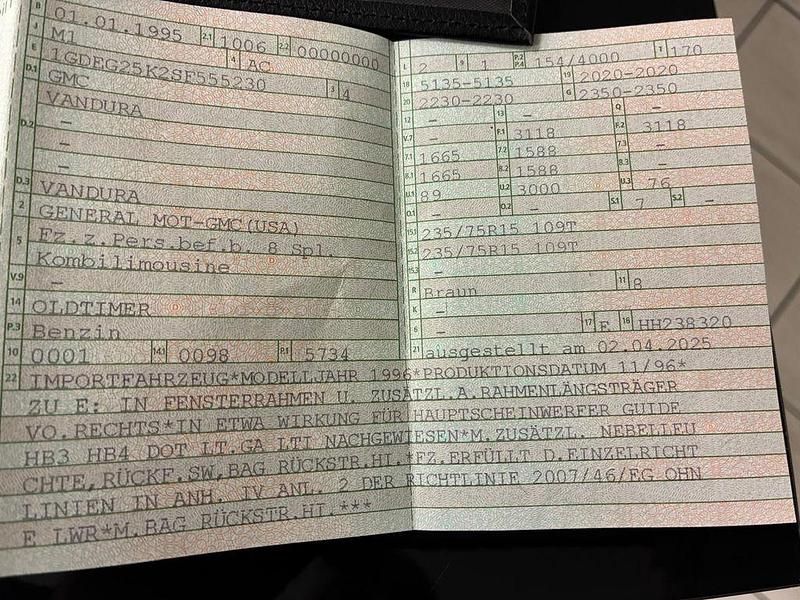 B 01.01.1995 2.1 1006 2.2 00000000
J M1 4 AC
E 1GDEG25K2SF555230 3 4
D.1 GMC
D.2 VANDURA
–
–
–
D.3 VANDURA
2 GENERAL MOT-GMC(USA)
5 Fz.z.Pers.bef.b. 8 Spl.
Kombilimousine
V.9 –
14 OLDTIMER
P.3 Benzin
10 0001 14.1 0098 P.1 5734
2 9 1 P.2 P.4 154/4000 T 170
18 5135-5135 19 2020-2020
20 2230-2230 G 2350-2350
12 – 13 – Q –
V.7 – F.1 3118 F.2 3118
7.1 1665 7.2 1588 7.3 –
8.1 1665 8.2 1588 8.3 –
U.1 89 U.2 3000 U.3 76
O.1 – O.2 – S.1 7 S.2 –
15.1 235/75R15 109T
15.2 235/75R15 109T
15.3 –
R Braun 11 8
K –
6 – 17 E 16 HH238320
21 ausgestellt am 02.04.2025
22 IMPORTFAHRZEUG*MODELLJAHR 1996*PRODUKTIONSDATUM 11/96*
ZU E: IN FENSTERRAHMEN U. ZUSÄTZL.A.RAHMENLÄNGSTRÄGER
VO.RECHTS*IN ETWA WIRKUNG FÜR HAUPTSCHEINWERFER GUIDE
HB3 HB4 DOT LT.GA LTI NACHGEWIESEN*M.ZUSÄTZL. NEBELLEU
CHTE,RÜCKF.SW,BAG RÜCKSTR.HI.*FZ.ERFÜLLT D.EINZELRICHT
LINIEN IN ANH. IV ANL. 2 DER RICHTLINIE 2007/46/EG OHN
E LWR*M.BAG RÜCKSTR.HI.***